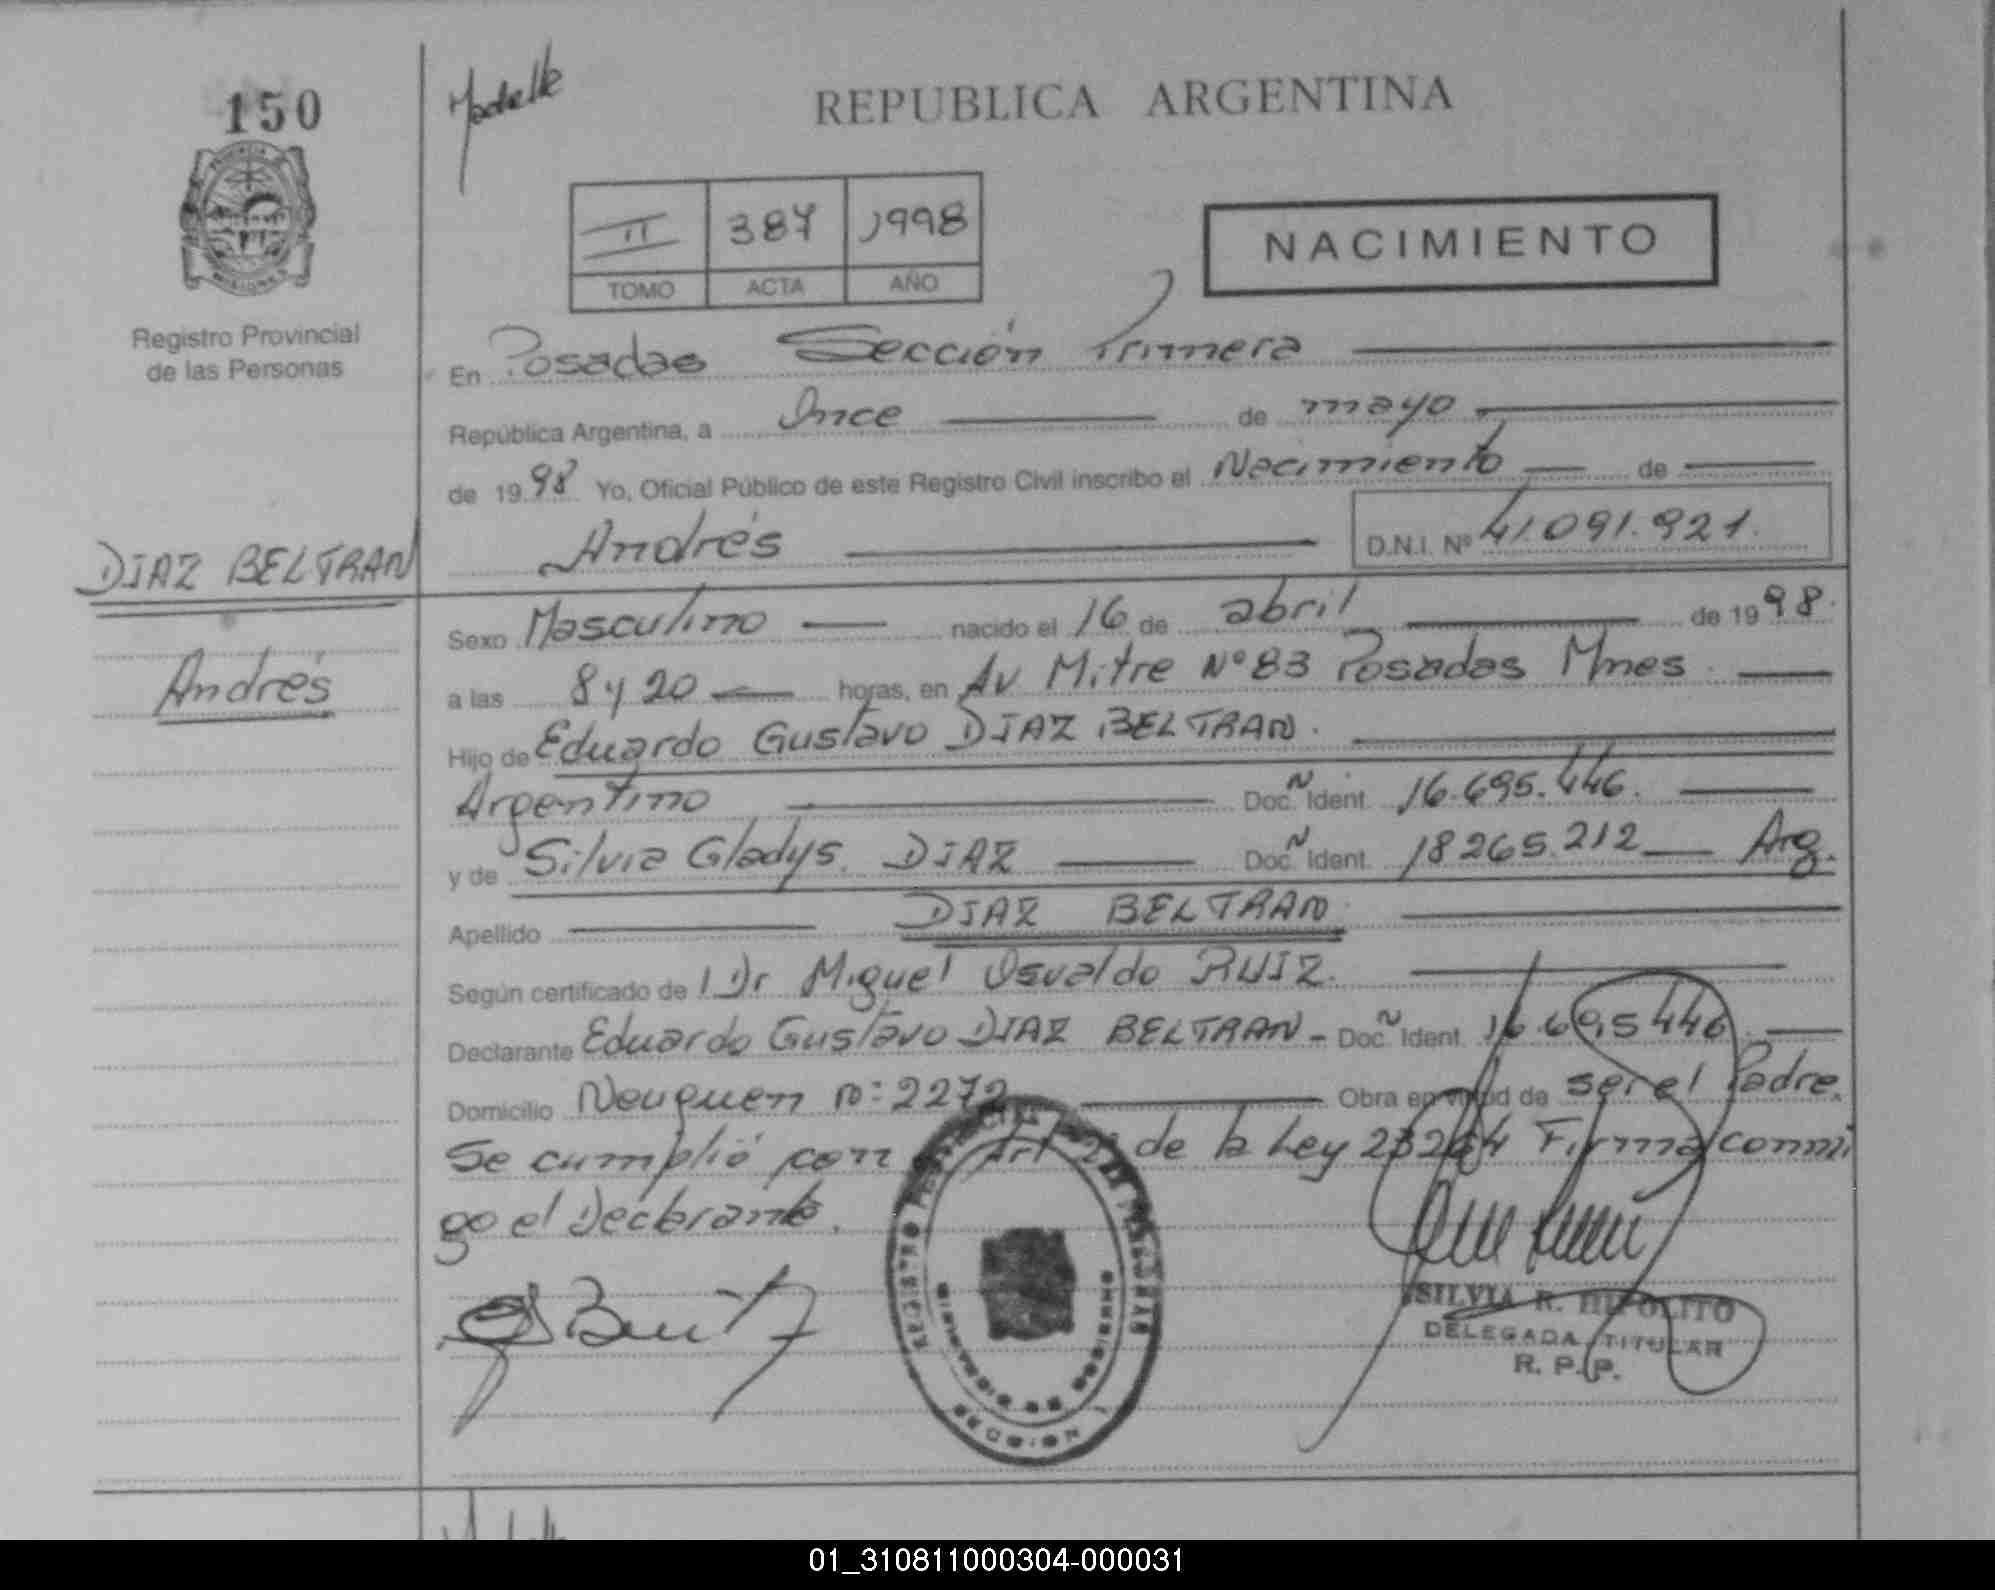 150
REPUBLICA ARGENTINA
II 387 1998
TOMO ACTA AÑO
NACIMIENTO
Registro Provincial
de las Personas
En Posadas Sección Primera
República Argentina, a Once de mayo
de 1998 Yo, Oficial Público de este Registro Civil inscribo el Nacimiento de
Andrés D.N.I. Nº 41.091.921.
DIAZ BELTRAN
Andrés
Sexo Masculino nacido el 16 de abril de 1998.
a las 8 y 20 horas, en Av Mitre Nº 83 Posadas Mnes
Hijo de Eduardo Gustavo DIAZ BELTRAN.
Argentino Doc. Ident. 16.695.446.
y de Silvia Gladys. DIAZ Doc. Ident. 18265.212 Arg.
Apellido DIAZ BELTRAN
Según certificado de Dr Miguel Osvaldo RUIZ.
Declarante Eduardo Gustavo DIAZ BELTRAN - Doc. Ident. 16.695446
Domicilio Neuquen nº: 2272 Obra en virtud de ser el Padre.
Se cumplió con Art 2º de la Ley 23264 Firma conmi
go el Declarante.
REGISTRO PROVINCIAL DE LAS PERSONAS
MINISTERIO DE GOBIERNO
SECCION 1
SILVIA R. HIPOLITO
DELEGADA TITULAR
R. P. P.
01_310811000304-000031